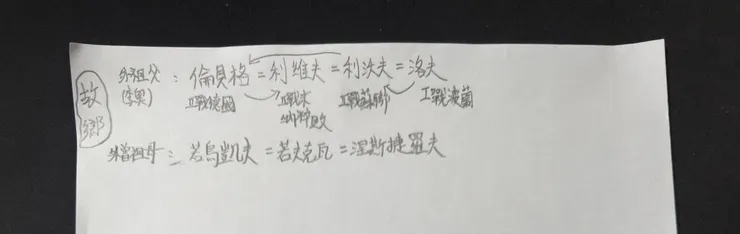 故鄉
外祖父：倫貝格=利維夫=利沃夫=洛夫
(李奧) I戰德國 I戰末 I戰蘇聯 I戰波蘭
敗
外曾祖母：若烏凱夫=若夫克瓦=涅斯捷羅夫